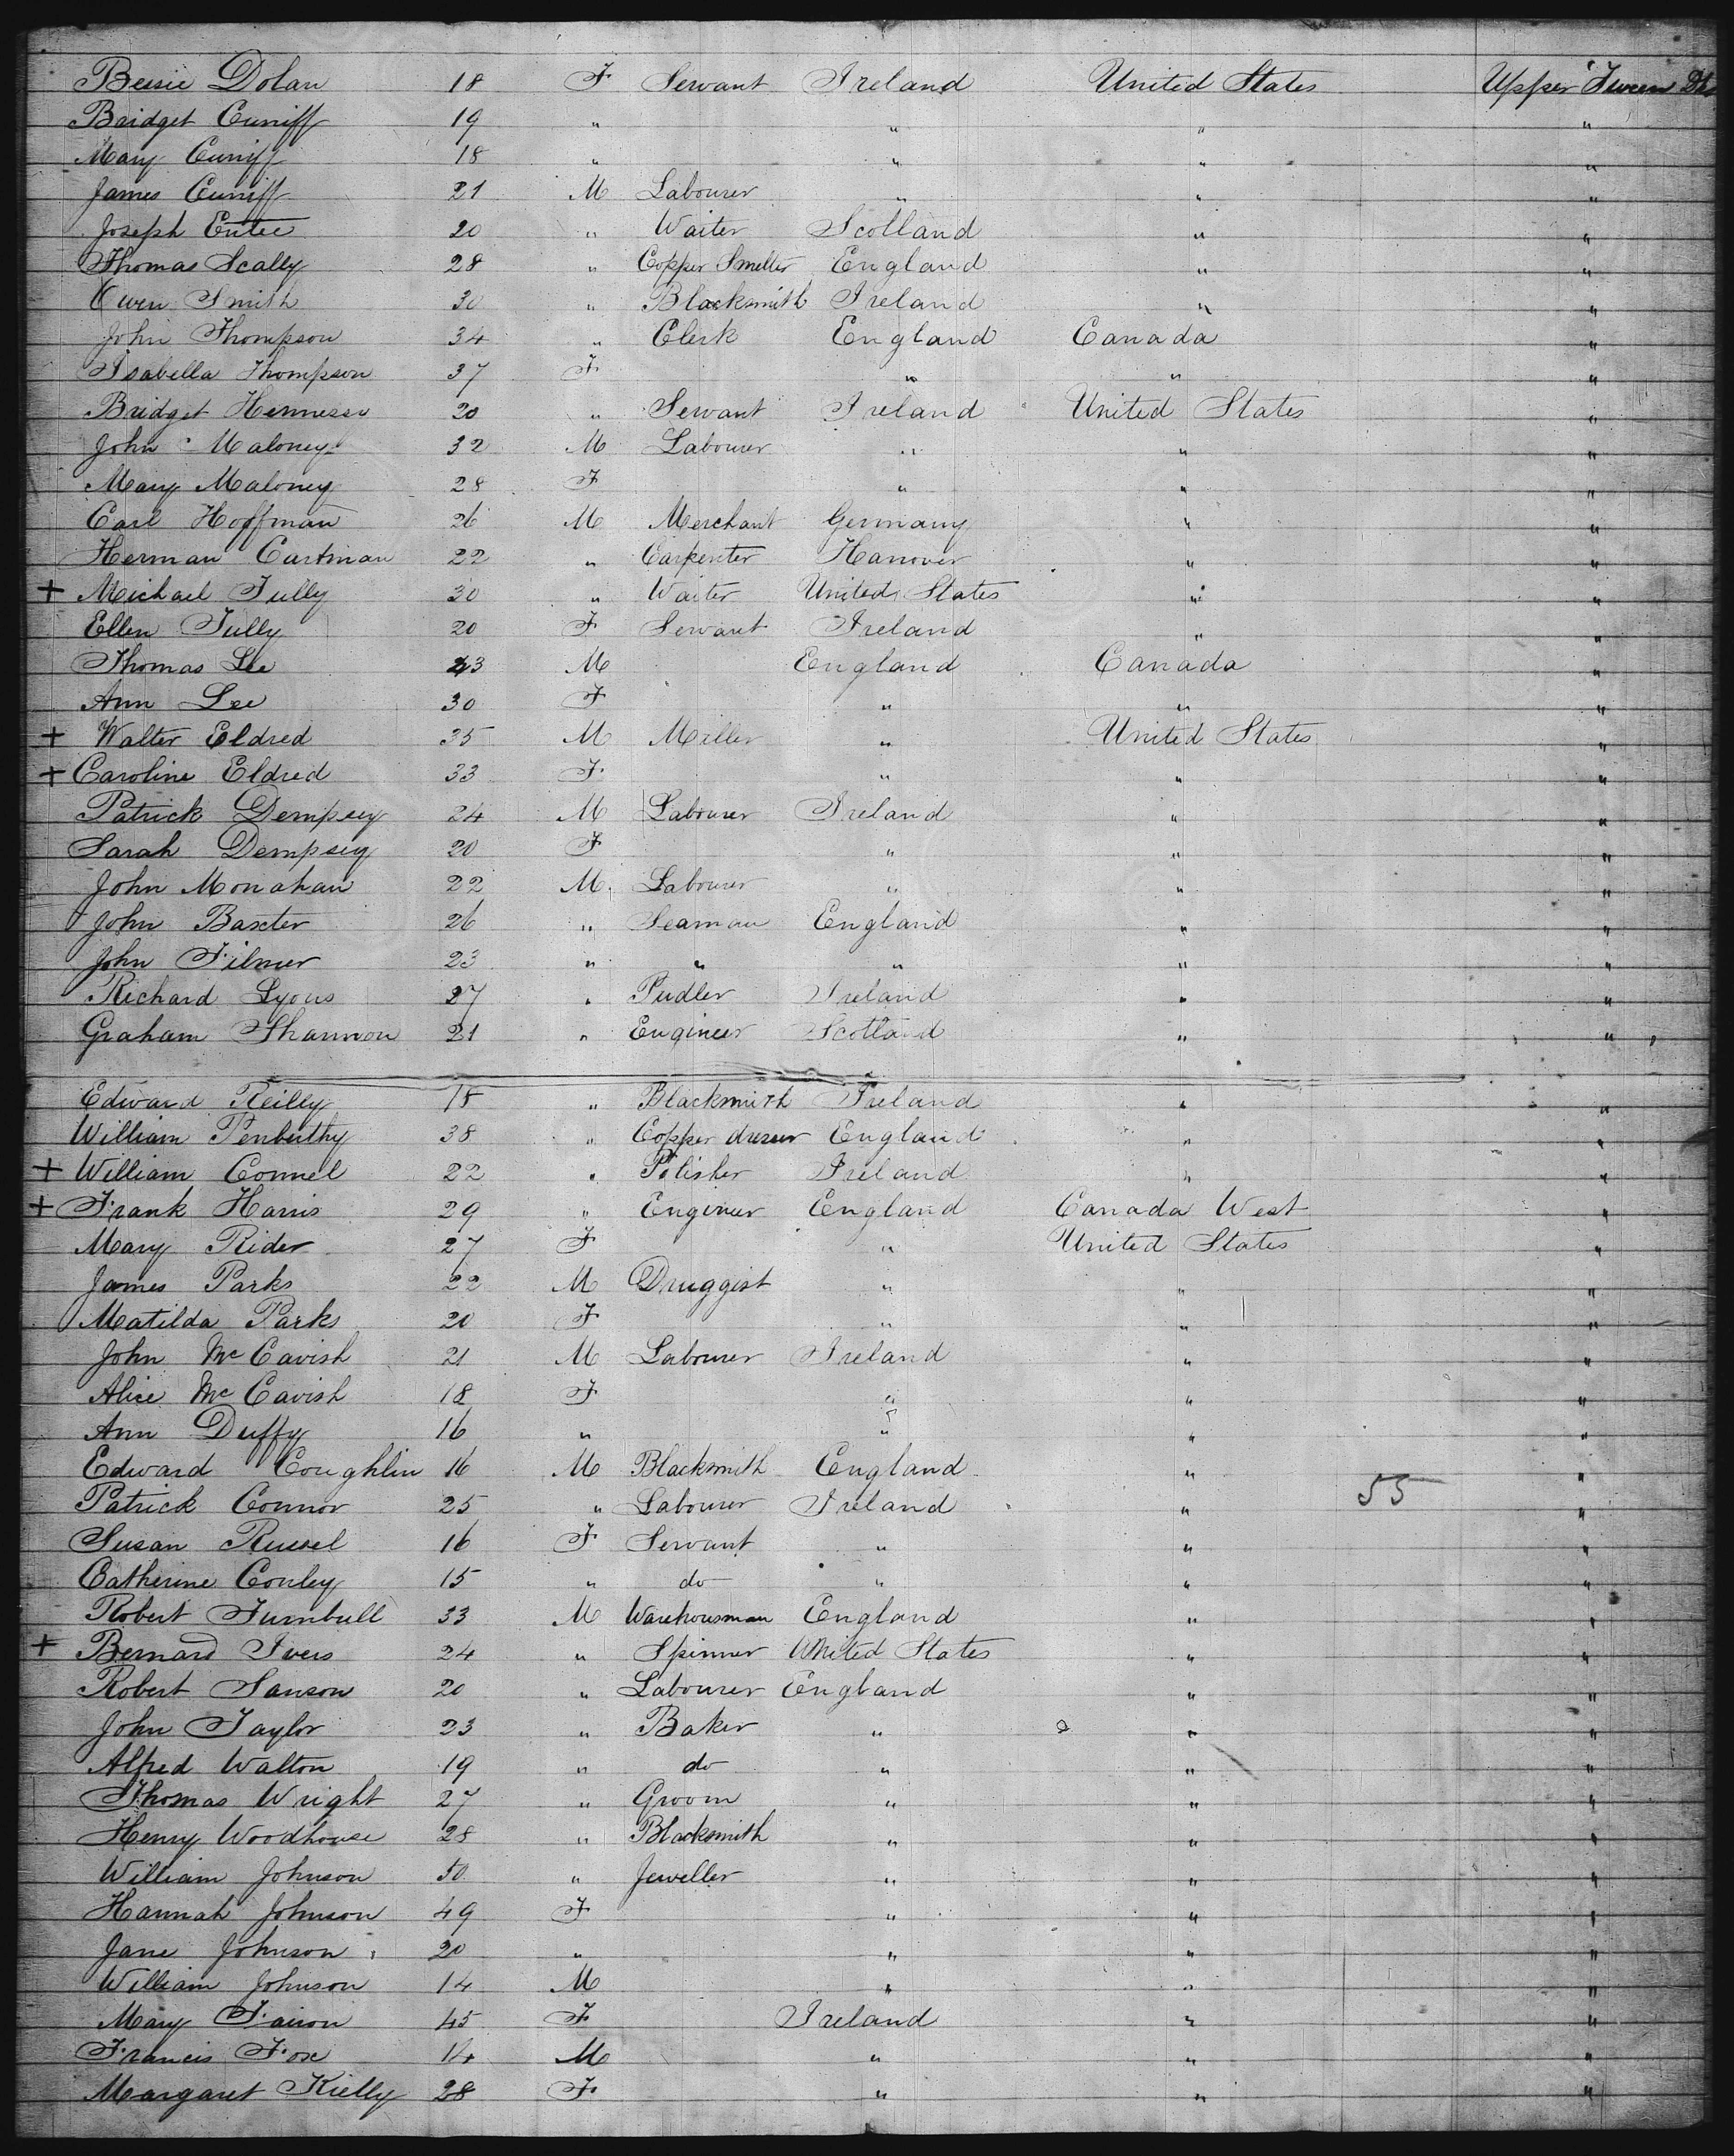 Bessie Dolan 18 F Servant Ireland United States Upper Tween Dk
Bridget Cuniff 19 " " " "
Mary Cuniff 18 " " " "
James Cuniff 21 M Labourer " " "
Joseph Entee 20 " Waiter Scotland " "
Thomas Scally 28 " Copper Smelter England " "
Owen Smith 30 " Blacksmith Ireland " "
John Thompson 34 " Clerk England Canada "
Isabella Thompson 37 F " " "
Bridget Hennessy 20 " Servant Ireland United States "
John Maloney 32 M Labourer " " "
Mary Maloney 28 F " " "
Carl Hoffman 26 M Merchant Germany " "
Herman Cartman 22 " Carpenter Hanover " "
+ Michael Tully 30 " Waiter United States " "
Ellen Tully 20 F Servant Ireland " "
Thomas Lee 23 M England Canada "
Ann Lee 30 F " " "
+ Walter Eldred 35 M Miller " United States "
+ Caroline Eldred 33 F " " "
Patrick Dempsey 24 M Labourer Ireland " "
Sarah Dempsey 20 F " " "
John Monahan 22 M Labourer " " "
John Baxter 26 " Seaman England " "
John Filmer 23 " " " " "
Richard Lyons 27 " Pudler Ireland " "
Graham Shannon 21 " Engineer Scotland " "
Edward Reilly 18 " Blacksmith Ireland " "
William Penberthy 38 " Copper dresser England " "
+ William Connel 22 " Polisher Ireland " "
+ Frank Harris 29 " Engineer England Canada West "
Mary Rider 27 F " United States "
James Parks 22 M Druggist " " "
Matilda Parks 20 F " " "
John McCavish 21 M Labourer Ireland " "
Alice McCavish 18 F " " "
Ann Duffy 16 " " " "
Edward Coughlin 16 M Blacksmith England " "
Patrick Connor 25 " Labourer Ireland " 55 "
Susan Russel 16 F Servant " " "
Catherine Conley 15 " do " " "
Robert Turnbull 33 M Warehousman England " "
+ Bernard Ivers 24 " Spinner United States " "
Robert Sanson 20 " Labourer England " "
John Taylor 23 " Baker " " "
Alfred Walton 19 " do " " "
Thomas Wright 27 " Groom " " "
Henry Woodhouse 28 " Blacksmith " " "
William Johnson 50 " Jeweller " " "
Hannah Johnson 49 F " " "
Jane Johnson 20 " " " "
William Johnson 14 M " " "
Mary 45 F Ireland " "
Francis Fox 14 M " " "
Margaret Kielly 28 F " " "